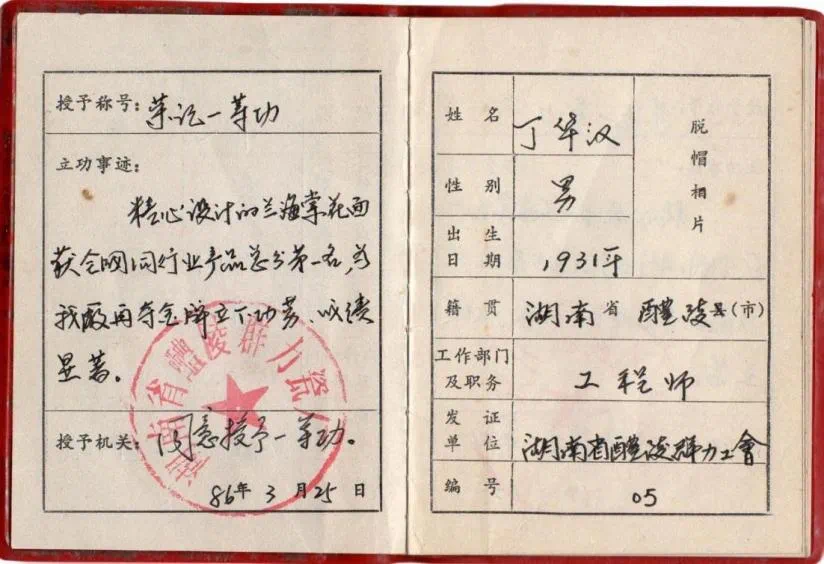 授予称号：荣记一等功
立功事迹：
精心设计的兰海棠花面
获全国同行业产品总分第一名，为
我厂再夺金牌立下功劳．成绩
显著。
湖南省醴陵群力瓷厂
授予机关：同意授予一等功。
86年3月25日
姓名 丁华汉
脱帽相片
性别 男
出生日期 1931年
籍贯 湖南省醴陵县（市）
工作部门及职务 工程师
发证单位 湖南省醴陵群力工會
编号 05